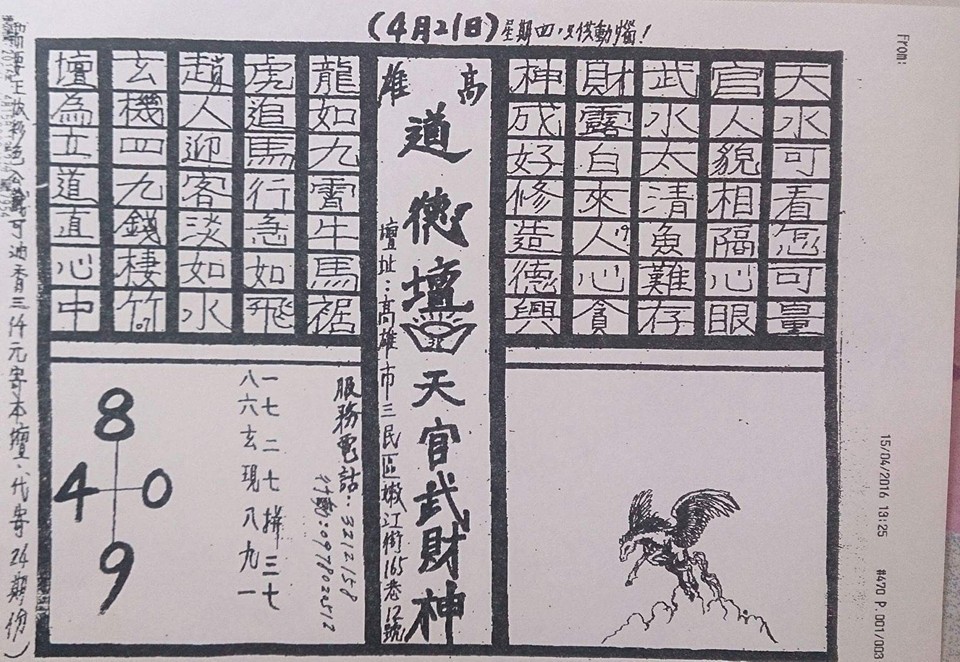 (4月21日)星期四,只供動腦!
From:
15/04/2016 13:25 #470 P.001/003
天水可看怎可量
官人貌相隔心眼
武水太清魚難存
財露白來人19心貪
神成好修造德興
高雄
道德壇
天官武財神
壇址:高雄市三民區嫩江街165巷12號
龍如九霄牛馬裾
虎追馬行急如飛
趙人迎客淡如水
玄機四九錢棲竹07
壇為立道直心中
服務電話:3212158
行動:0978022512
一七二七拼三七
八六玄現八九一
8
4 0
9
可油香三仟元寄本壇、代寄24期份)